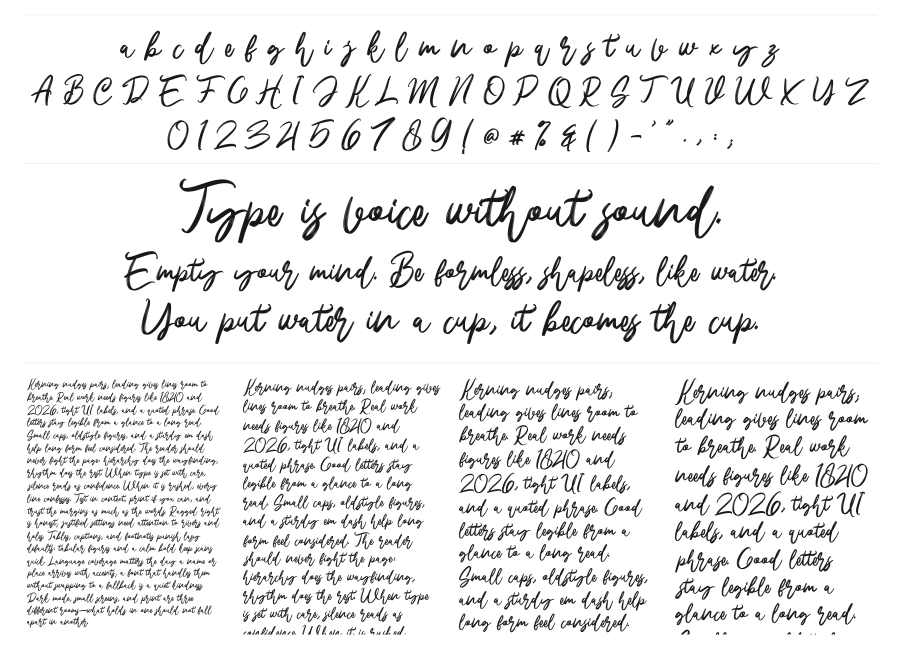 a b c d e f g h i j k l m n o p q r s t u v w x y z
A B C D E F G H I J K L M N O P Q R S T U V W X Y Z
0 1 2 3 4 5 6 7 8 9 ! ( @ # % & ( ) - ' " . , : ;
Type is voice without sound.
Empty your mind. Be formless, shapeless, like water.
You put water in a cup, it becomes the cup.
Kerning nudges pairs, leading gives lines room to
breathe. Real work needs figures like 1820 and
2026, tight UI labels, and a quoted phrase. Good
letters stay legible from a glance to a long read.
Small caps, oldstyle figures, and a sturdy em dash
help long form feel considered. The reader should
never fight the page: hierarchy does the wayfinding,
rhythm does the rest. When type is set with care,
silence reads as confidence. When it is rushed, every
line confesses. Test in context, print if you can, and
trust the margins as much as the words. Ragged right
is honest, justified setting needs attention to rivers and
holes. Tables, captions, and footnotes punish lazy
defaults: tabular figures and a calm bold keep pains
quiet. Language coverage matters the day a name or
place arrives with accents, a font that handles them
without swapping to a fallback is a quiet kindness.
Dark mode, small screens, and print are three
different rooms—what holds in one should not fall
apart in another.
Kerning nudges pairs, leading gives
lines room to breathe. Real work
needs figures like 1820 and
2026, tight UI labels, and a
quoted phrase. Good letters stay
legible from a glance to a long
read. Small caps, oldstyle figures,
and a sturdy em dash help long
form feel considered. The reader
should never fight the page:
hierarchy does the wayfinding,
rhythm does the rest. When type
is set with care, silence reads as
confidence. When it is rushed,
Kerning nudges pairs,
leading gives lines room to
breathe. Real work needs
figures like 1820 and
2026, tight UI labels,
and a quoted phrase. Good
letters stay legible from a
glance to a long read.
Small caps, oldstyle figures,
and a sturdy em dash help
long form feel considered.
Kerning nudges pairs,
leading gives lines room
to breathe. Real work
needs figures like 1820
and 2026, tight UI
labels, and a quoted
phrase. Good letters
stay legible from a
glance to a long read.